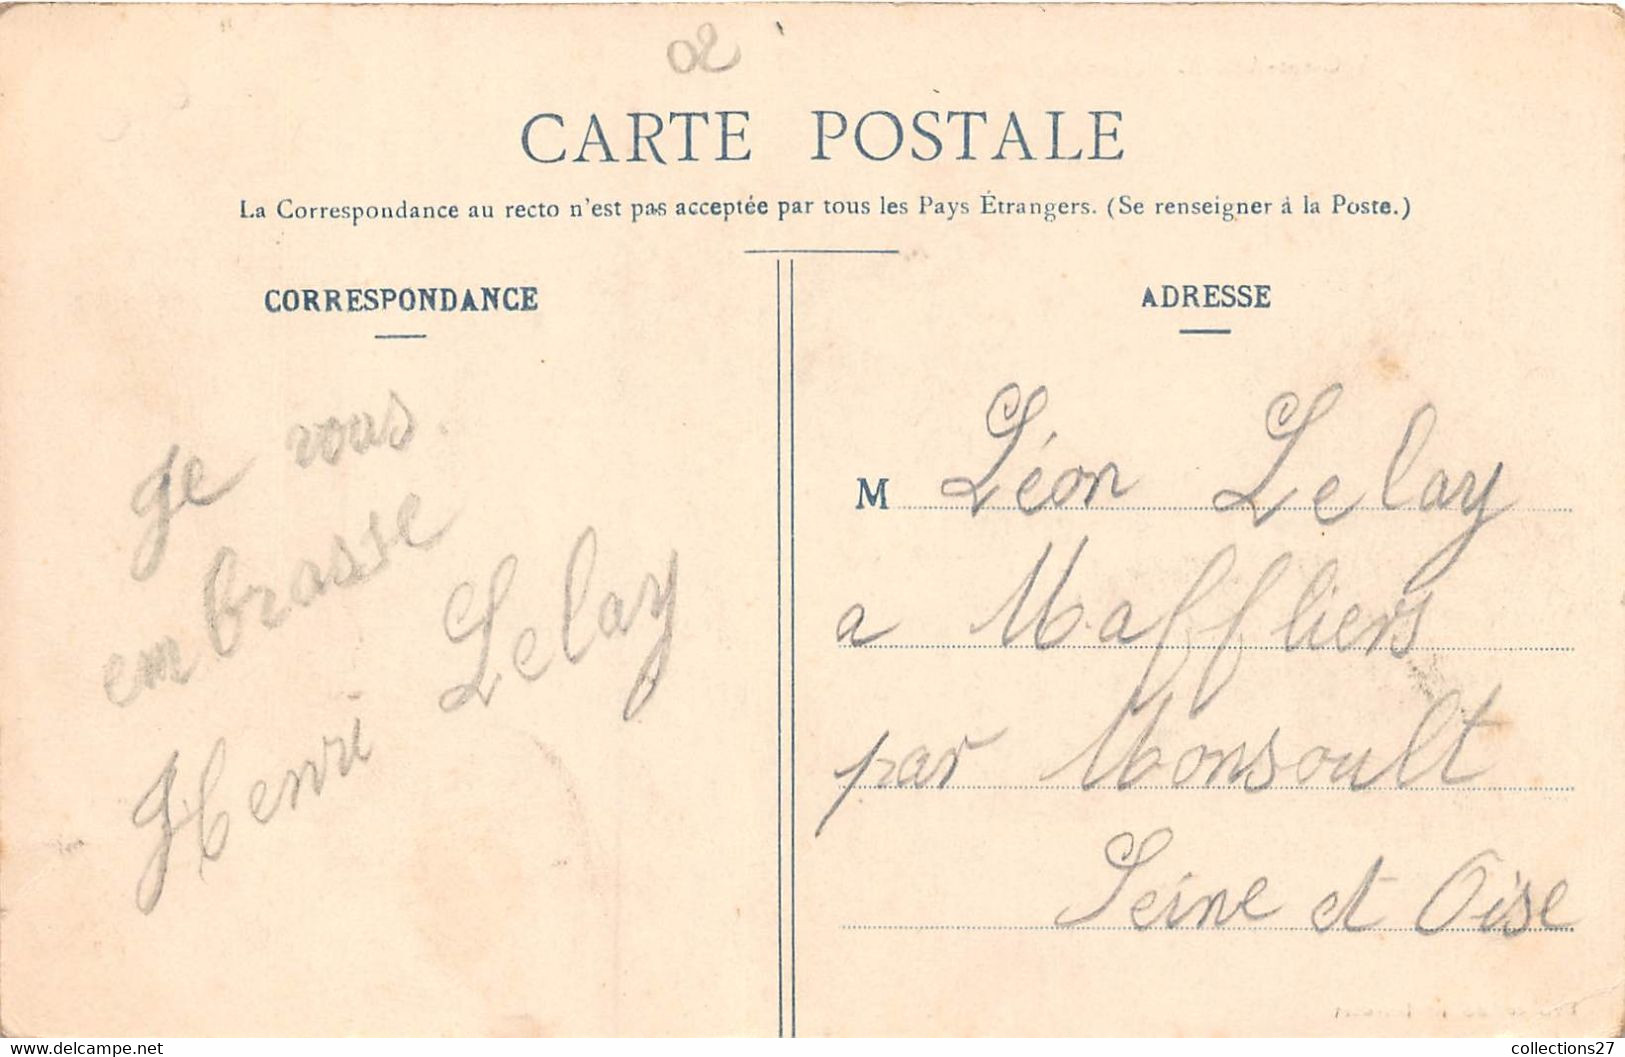 02
CARTE POSTALE
La Correspondance au recto n'est pas acceptée par tous les Pays Étrangers. (Se renseigner à la Poste.)
CORRESPONDANCE
Je vous
embrasse
Henri Lelay
ADRESSE
M Léon Lelay
a Maffliers
par Monsoult
Seine et Oise
www.delcampe.net
collections27